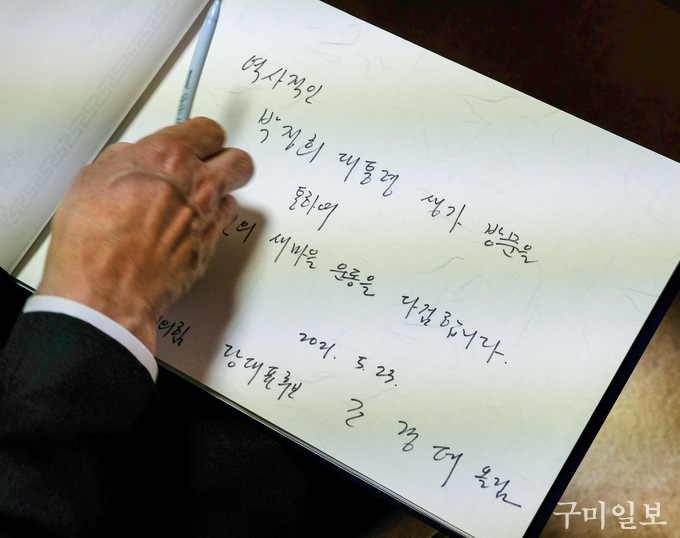 역사적인
박정희 대통령 생가 방문을
통하여
의 새마을 운동을 다짐합니다.
2021. 5. 23.
의힘 당대표후보
올림
구미일보